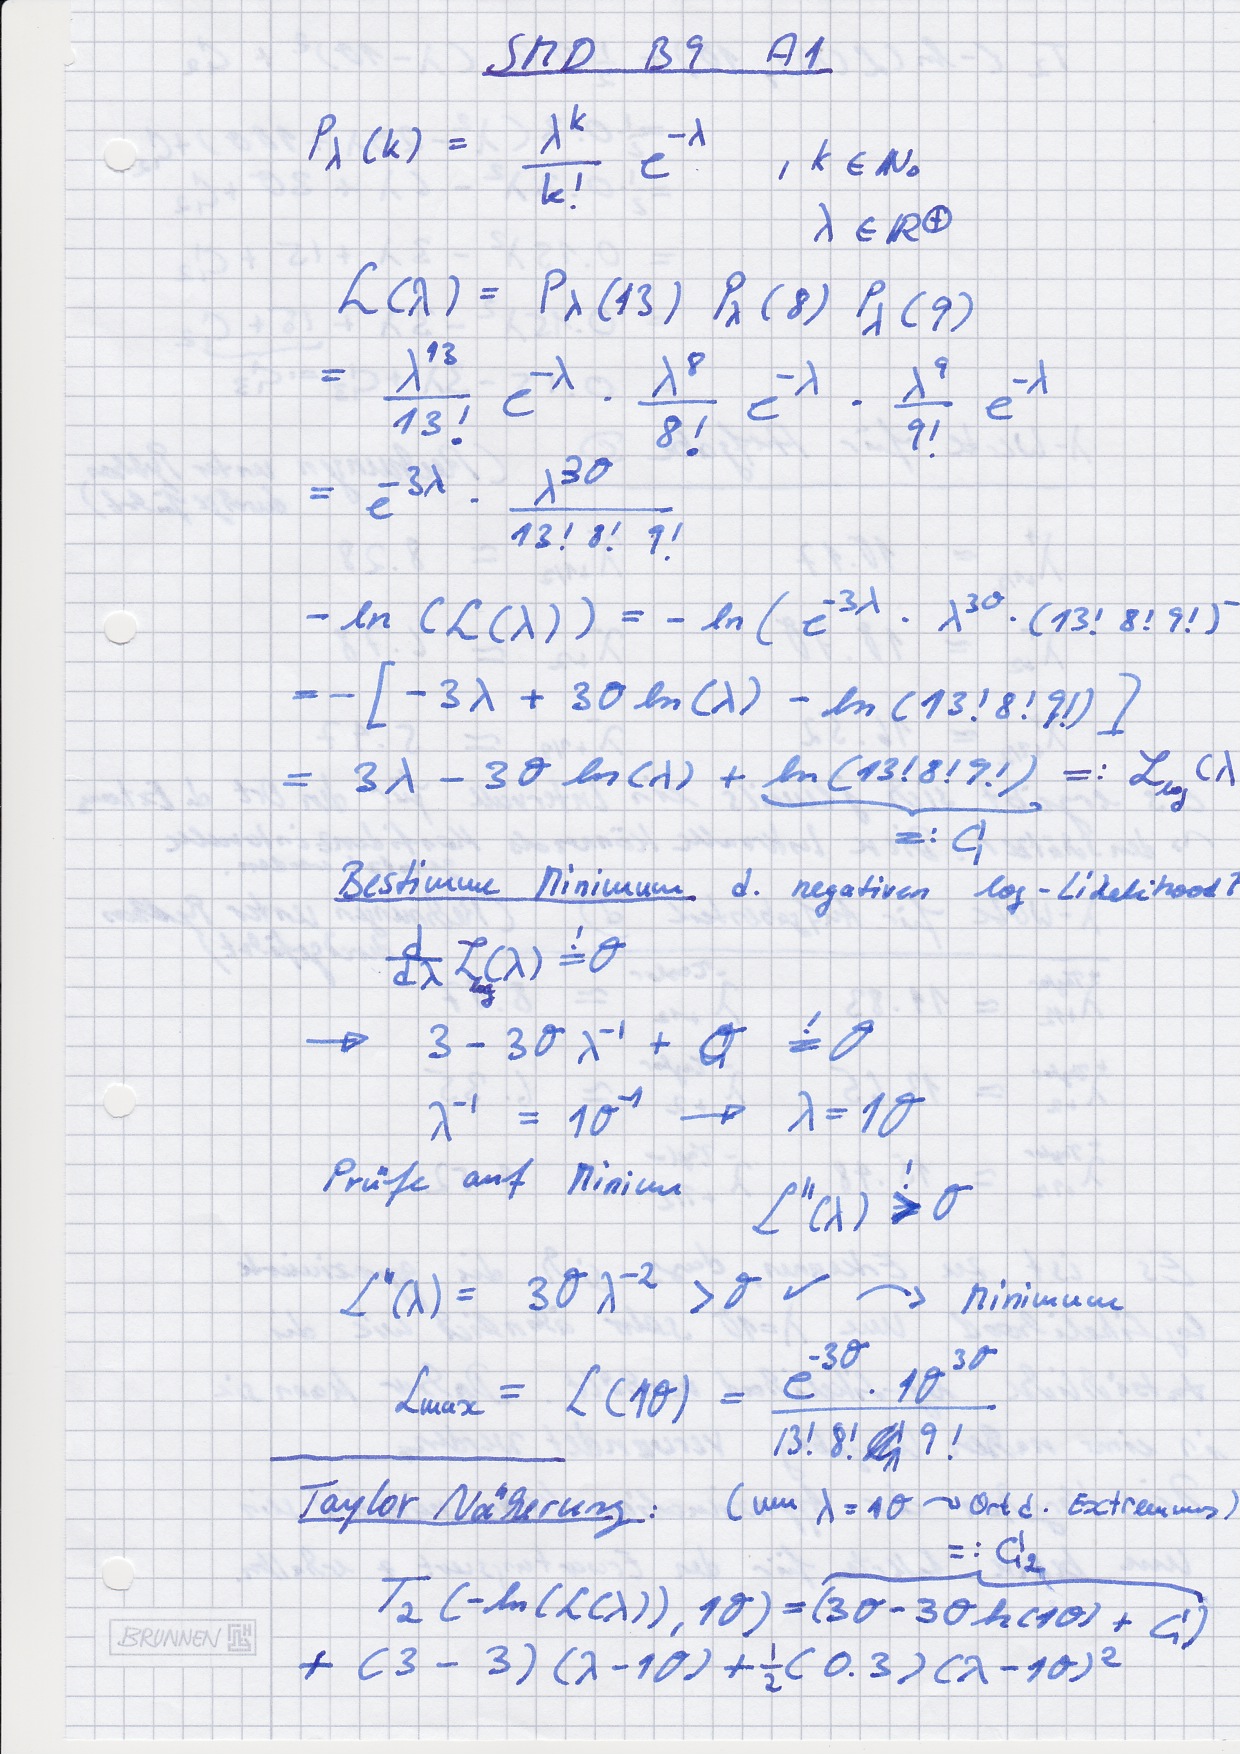 SMD B9 A1
P_λ(k) = λ^k / k! e^{-λ} , k ∈ ℕ₀
λ ∈ ℝ^⊕
ℒ(λ) = P_λ(13) P_λ(8) P_λ(9)
= λ^{13} / 13! e^{-λ} · λ^8 / 8! e^{-λ} · λ^9 / 9! e^{-λ}
= e^{-3λ} · λ^{30} / 13! 8! 9!
-ln(ℒ(λ)) = -ln(e^{-3λ} · λ^{30} · (13! 8! 9!)^-
= -[-3λ + 30 ln(λ) - ln(13! 8! 9!)]
= 3λ - 30 ln(λ) + ln(13! 8! 9!) =: ℒ_log(λ
=: C_1
Bestimme Minimum d. negativen log-Likelihood
d/dλ ℒ_log(λ) =^! 0
→ 3 - 30 λ^{-1} + 0 =^! 0
λ^{-1} = 10^{-1} → λ = 10
Prüfe auf Minimum ℒ''(λ) >^! 0
ℒ''(λ) = 30 λ^{-2} > 0 ✓ ↷ Minimum
ℒ_max = ℒ(10) = e^{-30} · 10^{30} / 13! 8! 9!
Taylor Näherung: (um λ = 10 ↝ Ort d. Extremums)
=: C_2
T_2(-ln(ℒ(λ)), 10) = (30 - 30 ln(10) + C_1)
+ (3 - 3)(λ - 10) + 1/2 (0.3)(λ - 10)^2
BRUNNEN